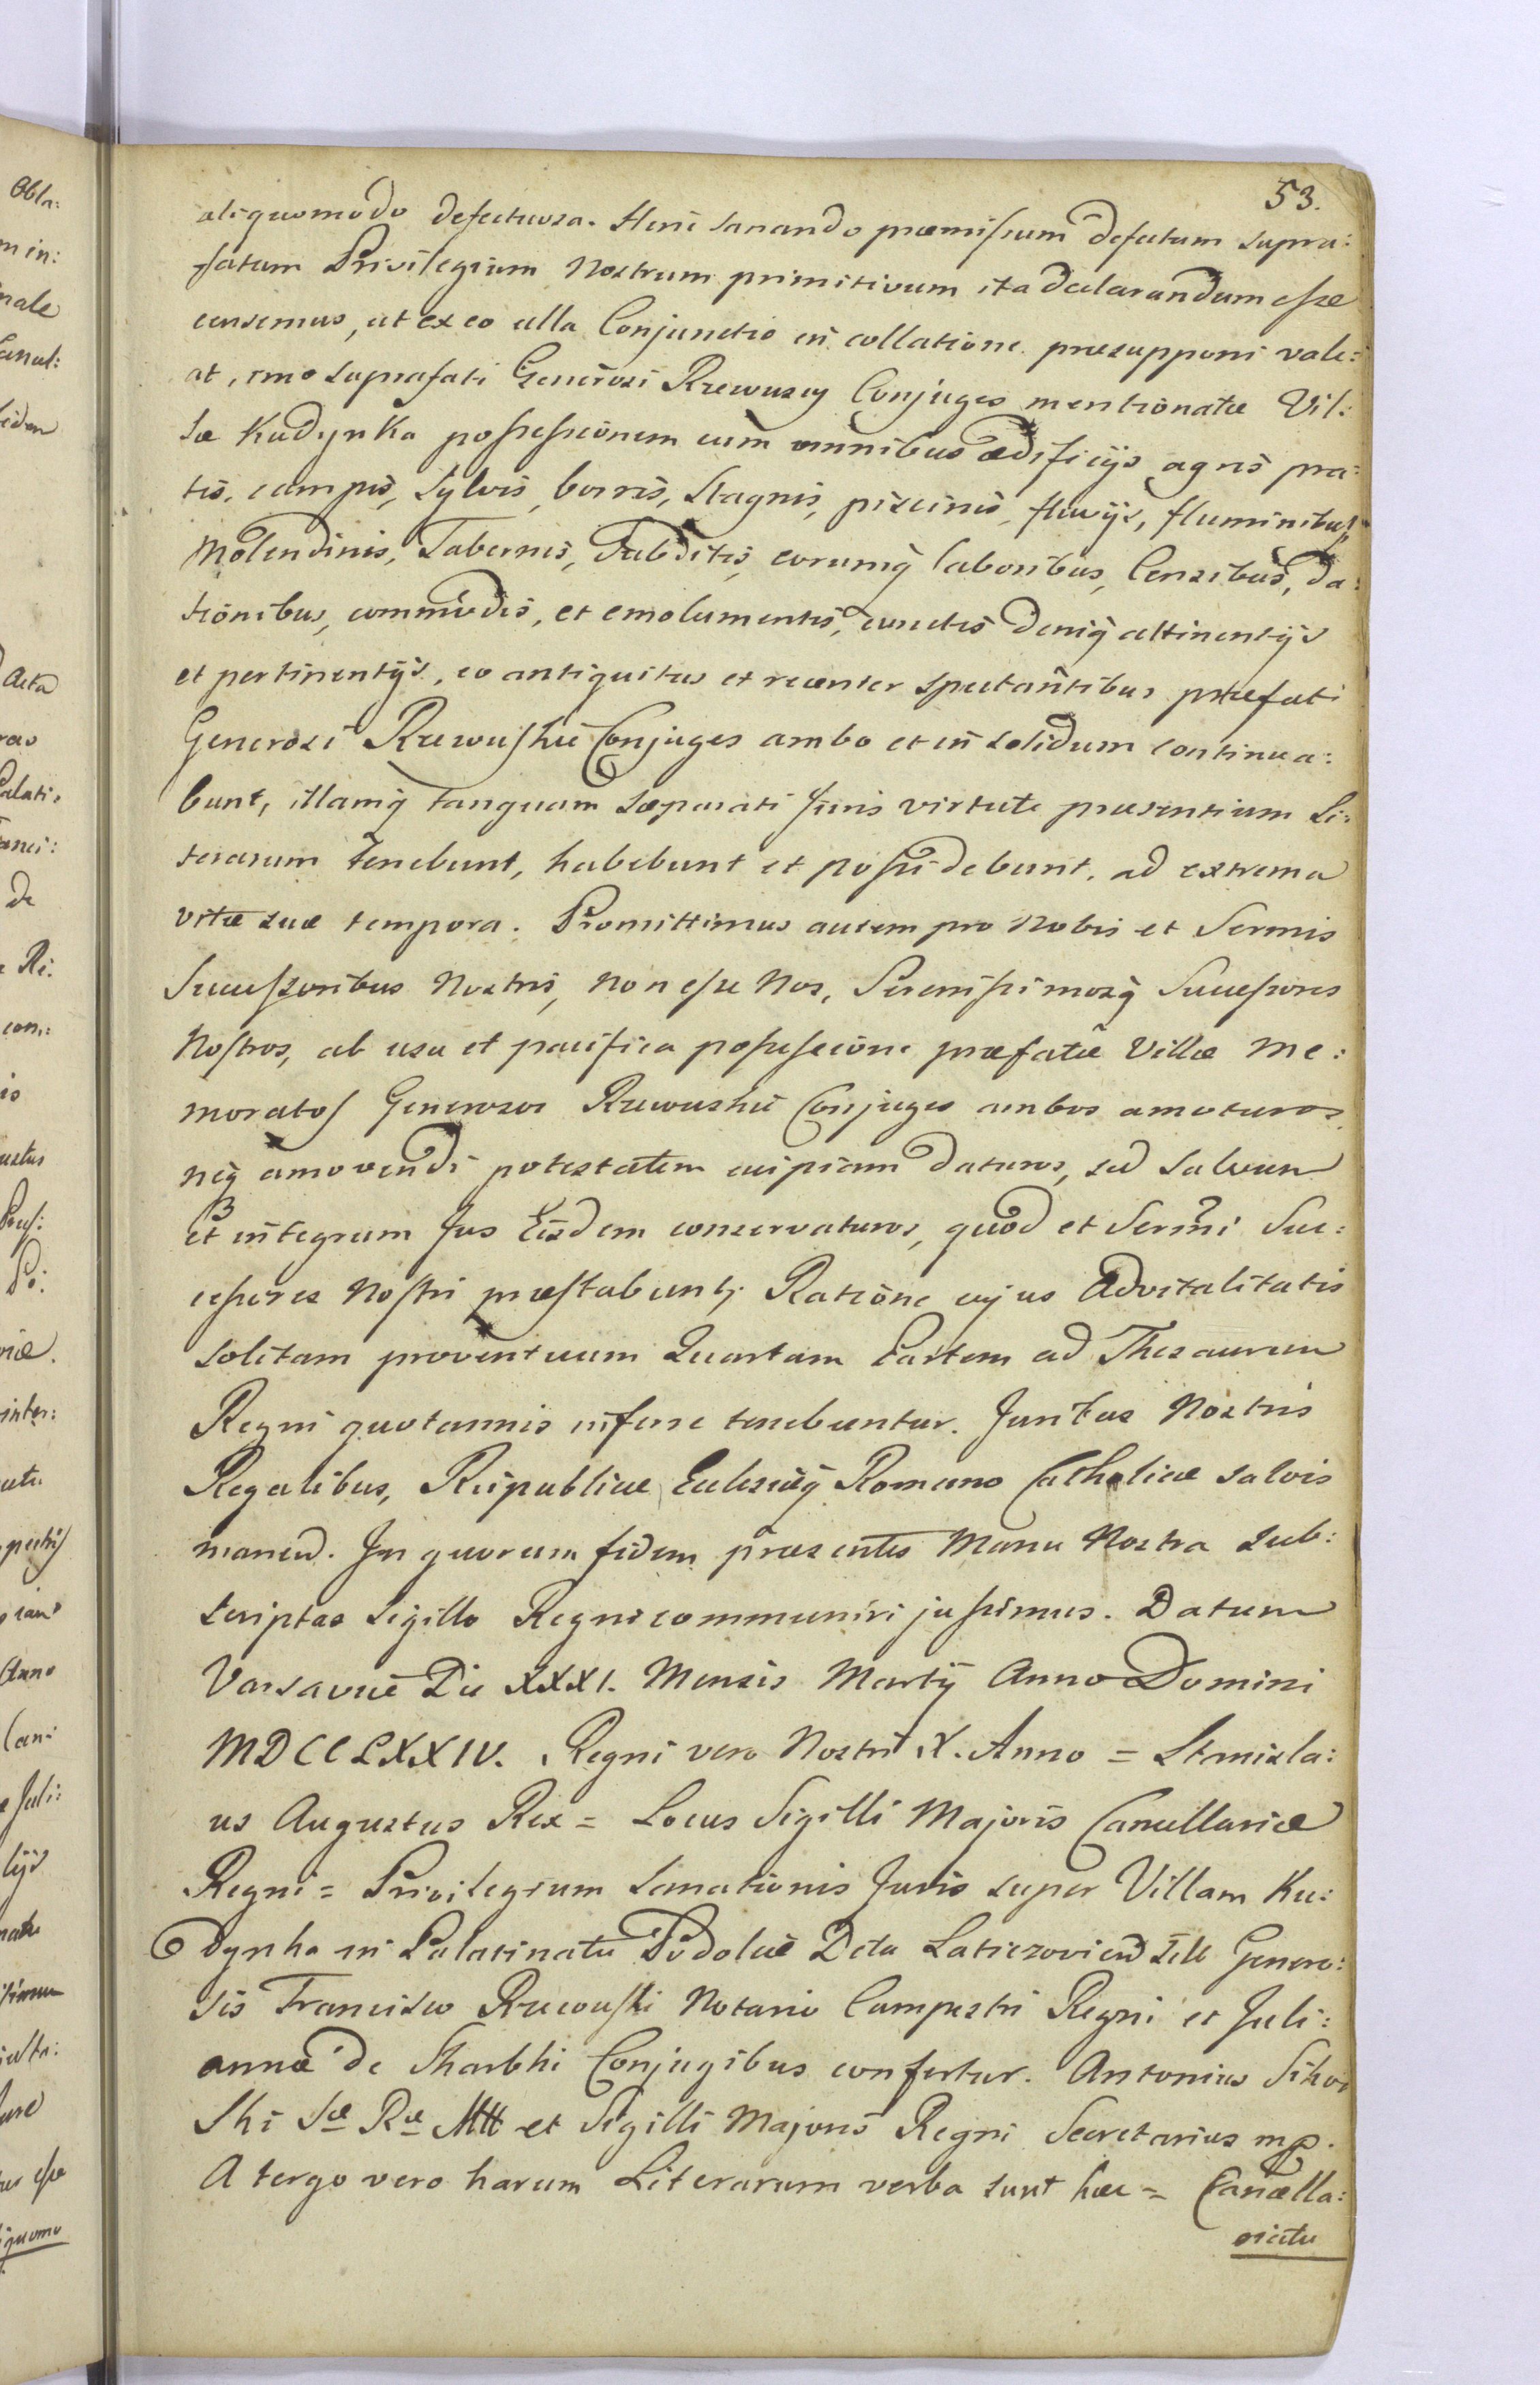 53.
aliquomodo defectuosa. Hinc sanando præmissum defectum supra:
fatum Privilegium Nostrum primitivum ita declarandum esse
censemus, ut ex eo ulla Conjunctio in collatione præsupponi vale:
at, imo suprafati Generosi Rzewuscy Conjuges mentionatæ Vil:
læ Kudynka possessionem cum omnibus ædificijs agris pra:
tis, campis, sylvis, borris, stagnis, piscinis, fluvijs, fluminibus,
Molendinis, Tabernis, Subditis, eorumq laboribus, Censibus, da:
tionibus, commodis, et emolumentis, cunctis deniq attinentijs
et pertinentijs, eo antiquitus et recenter spectantibus præfati
Generosi Rzewuskie Conjuges ambo et in solidum continua:
bunt, illamq tanquam separati Juris virtute præsentium Li:
terarum tenebunt, habebunt et possidebunt, ad extrema
vitæ suæ tempora. Promittimus autem pro Nobis et Sermis
Successoribus Nostris, non esse Nos, Serenissimosq Successores
Nostros, ab usu et pacifica possessione præfatæ Villæ me:
moratos Generosos Rzewuskie Conjuges ambos amoturos,
neq amovendi potestatem cuipiam daturos, sed salvum
et integrum Jus Eisdem conservaturos, quod et Sermi Suc:
cessores Nostri præstabunt; Ratione cujus Advitalitatis
solitam proventuum Quartam Partem ad Thesaurum
Regni quotannis inferre tenebuntur. Juribus Nostris
Regalibus, Reipublicæ Eclesiæq Romano Catholicæ salvis
manend. In quorum fidem præsentes Manu Nostra sub:
scriptas Sigillo Regni communiri jussimus. Datum
Varsaviæ Die XXXI. Mensis Martij Anno Domini
MDCCLXXIV. Regni vero Nostri X. Anno = Stanisla:
us Augustus Rex = Locus Sigilli Majoris Cancellariæ
Regni = Privilegium Sanationis Juris super Villam Ku:
dynka in Palatinatu Podoliæ Dctu Laticzovien sitt Genero:
sis Francisco Rzewuski Notario Campestri Regni et Juli:
annæ de Skarbki Conjugibus confertur. Antonius Siko
Ski Sæ Ræ Mtt et Sigilli Majoris Regni Secretarius mp.
A tergo vero harum Literarum verba sunt hæc = Cancella:
riatu